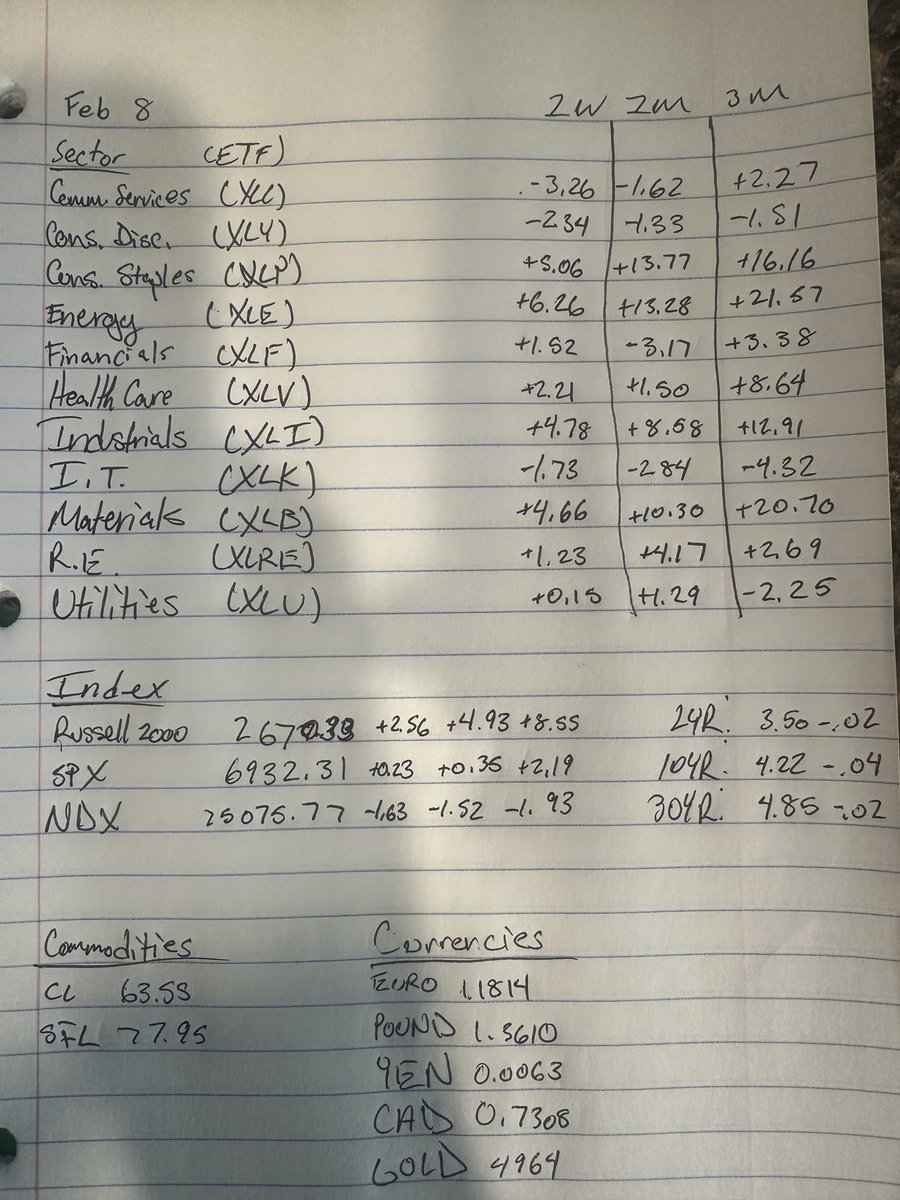 Feb 8 2W 2M 3M
Sector (ETF)
Comm. Services (XLC) -3.26 -1.62 +2.27
Cons. Disc. (XLY) -2.34 -1.33 -1.51
Cons. Staples (XLP) +5.06 +13.77 +16.16
Energy (XLE) +6.26 +13.28 +21.57
Financials (XLF) +1.52 -3.17 +3.38
Health Care (XLV) +2.21 +1.50 +8.64
Indstrials (XLI) +4.78 +8.58 +12.91
I.T. (XLK) -1.73 -2.84 -4.32
Materials (XLB) +4.66 +10.30 +20.70
R.E. (XLRE) +1.23 +4.17 +2.69
Utilities (XLU) +0.15 +1.29 -2.25
Index
Russell 2000 2670.33 +2.56 +4.93 +8.55 2YR: 3.50 -.02
SPX 6932.31 +0.23 +0.35 +2.19 10YR: 4.22 -.04
NDX 25075.77 -1.63 -1.52 -1.93 30YR: 4.85 -.02
Commodities Currencies
CL 63.55 EURO 1.1814
SIL 77.95 POUND 1.3610
YEN 0.0063
CAD 0.7308
GOLD 4964